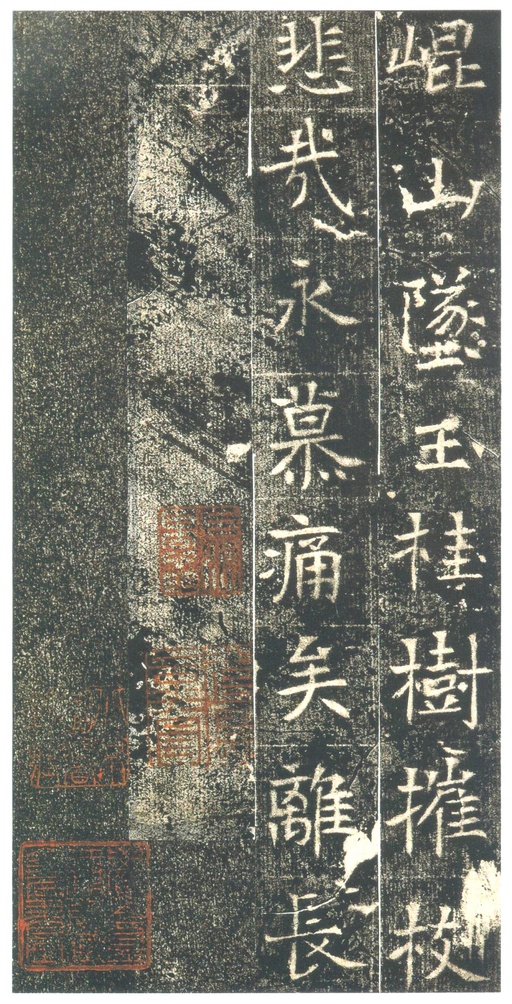 崐山墜玉桂樹摧枝
悲哉永慕痛矣離長